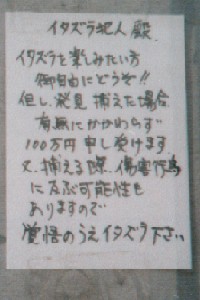 イタズラ犯人 殿
イタズラを楽しみたい方
御自由にどうぞ!!
但し、発見 捕えた場合
有無にかかわらず
100万円申し受けます
又、捕える際、傷害行為
に及ぶ可能性も
ありますので
覚悟のうえイタズラ下さい